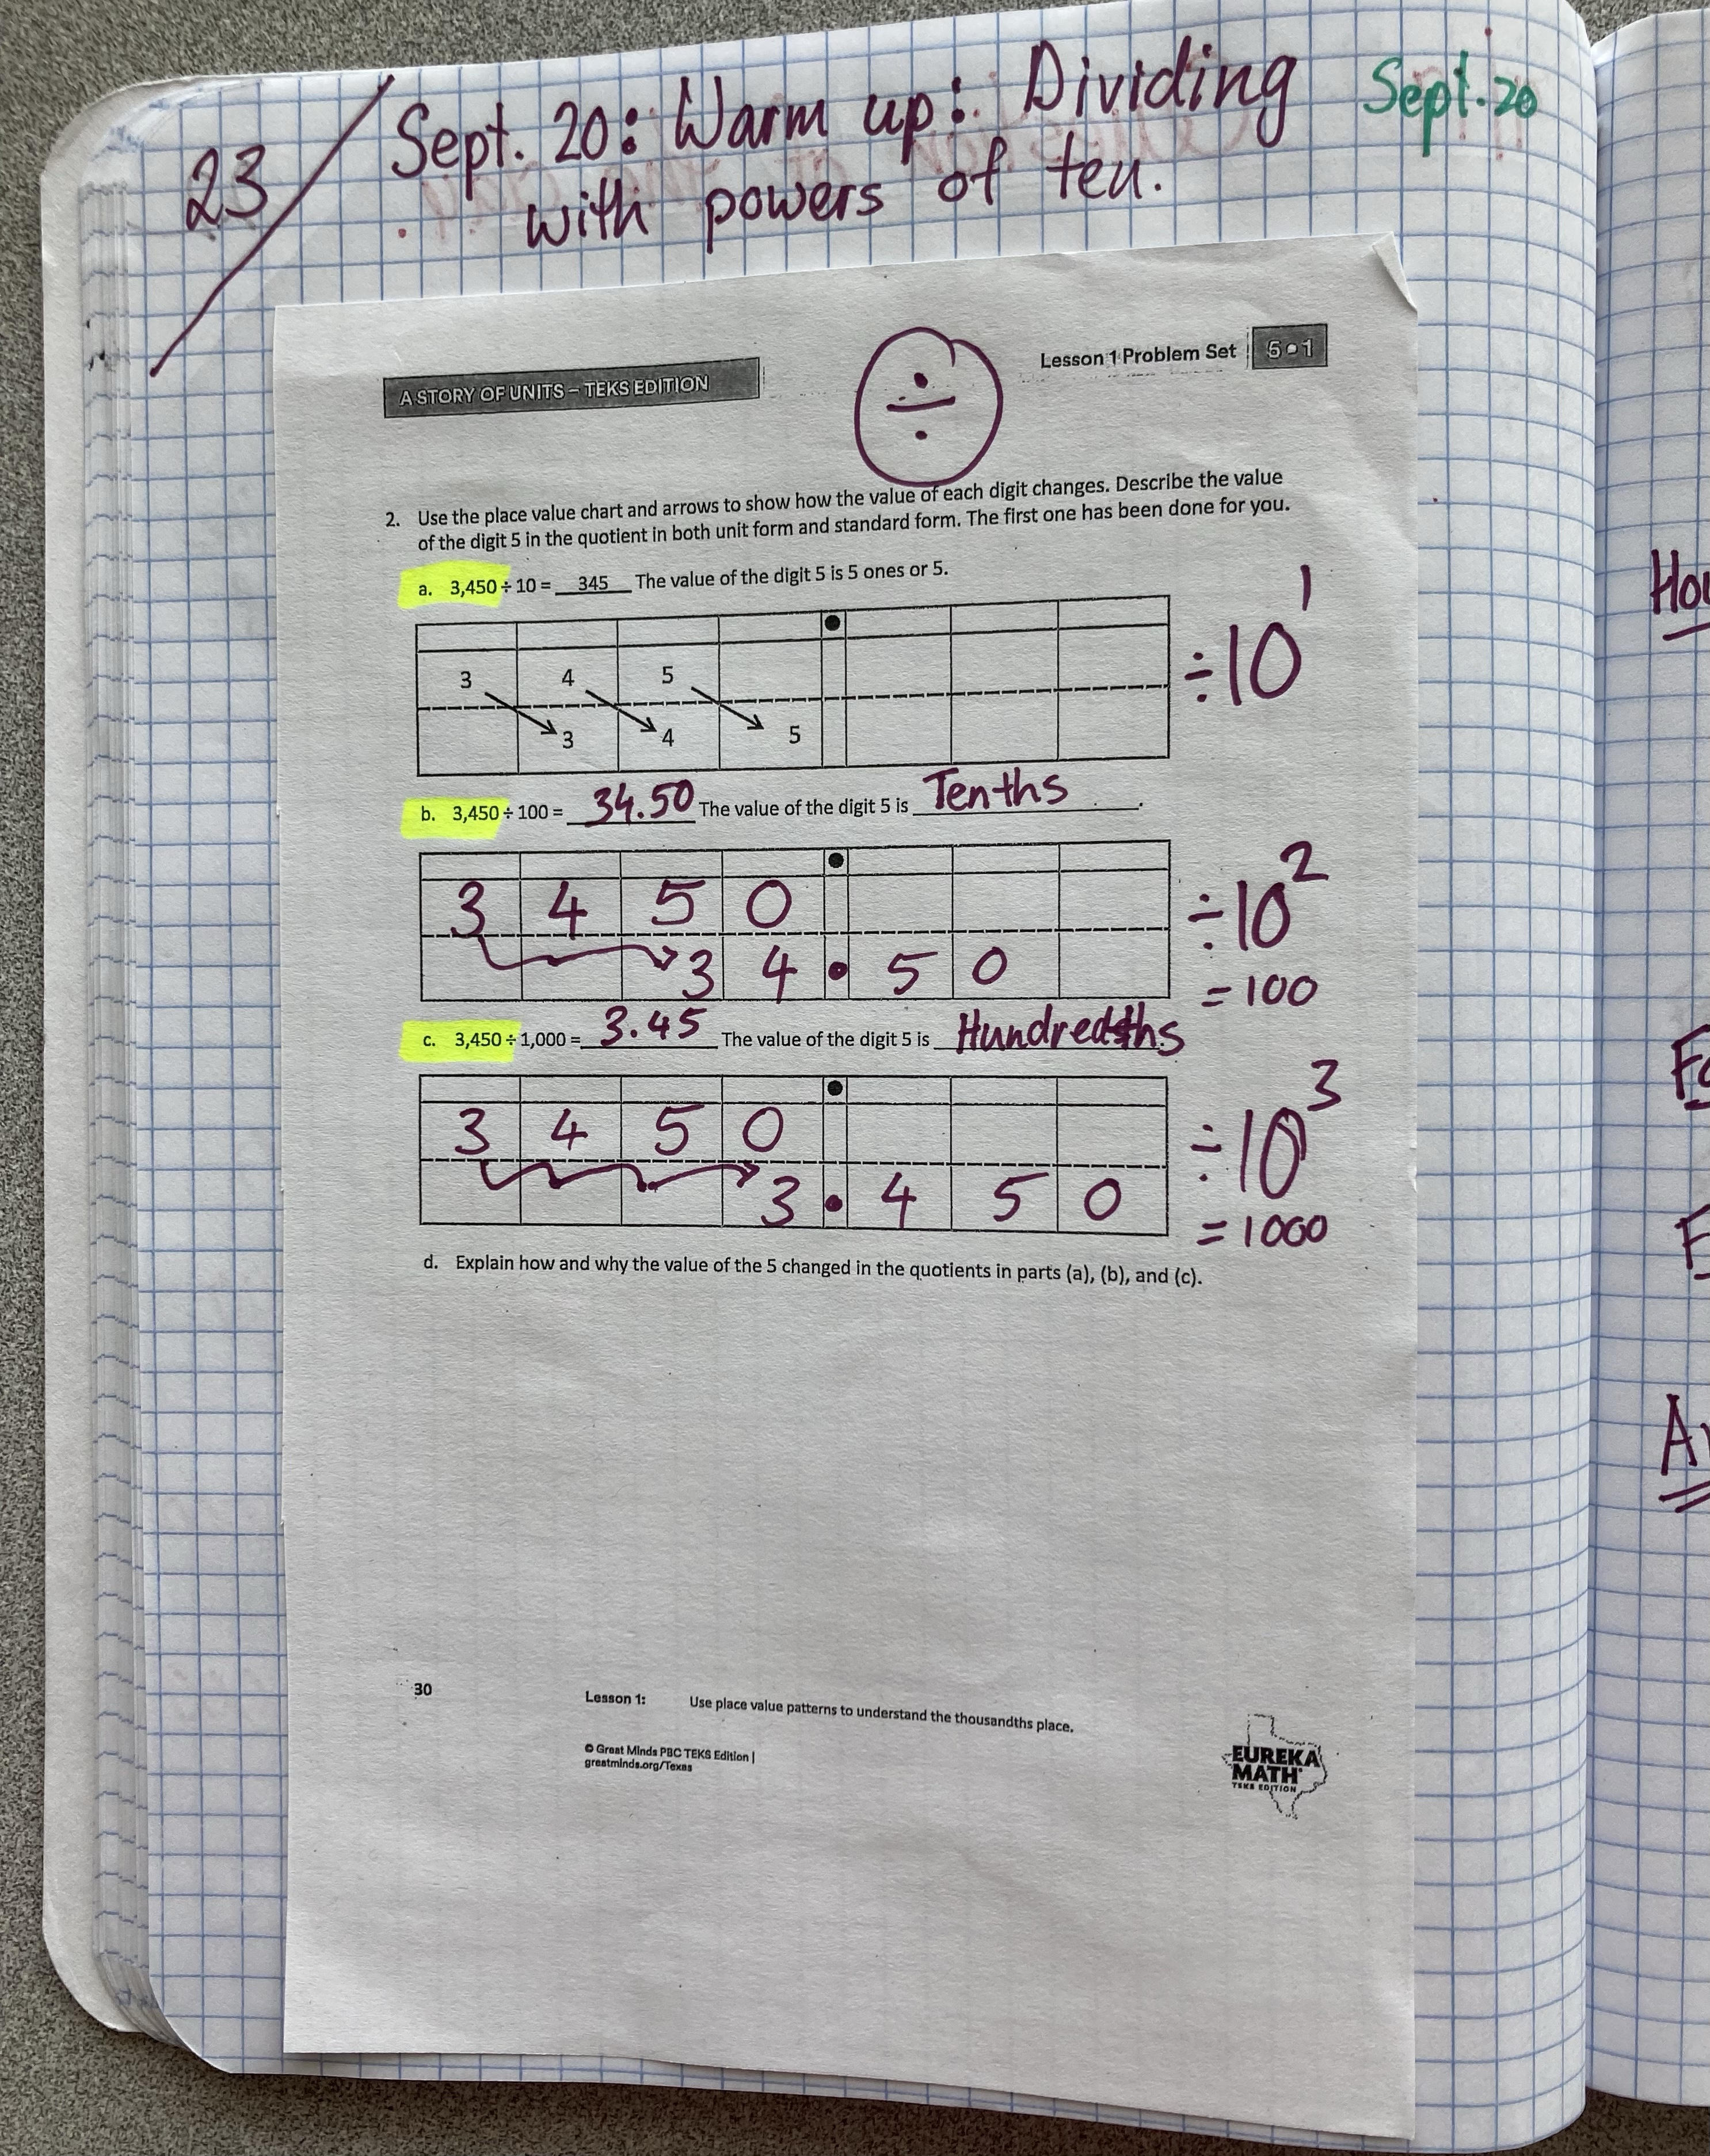 23
Sept. 20: Warm up: Dividing
with powers of ten.
Sept. 20
A STORY OF UNITS – TEKS EDITION
÷
Lesson 1 Problem Set 5•1
2. Use the place value chart and arrows to show how the value of each digit changes. Describe the value
of the digit 5 in the quotient in both unit form and standard form. The first one has been done for you.
a. 3,450 ÷ 10 = 345 The value of the digit 5 is 5 ones or 5.
3 4 5
3 4 5
÷10¹
b. 3,450 ÷ 100 = 34.50 The value of the digit 5 is Tenths.
3 4 5 0
3 4 • 5 0
÷10²
= 100
c. 3,450 ÷ 1,000 = 3.45 The value of the digit 5 is Hundredths
3 4 5 0
3 • 4 5 0
÷10³
= 1000
d. Explain how and why the value of the 5 changed in the quotients in parts (a), (b), and (c).
30
Lesson 1: Use place value patterns to understand the thousandths place.
© Great Minds PBC TEKS Edition |
greatminds.org/Texas
EUREKA
MATH
TEKS EDITION